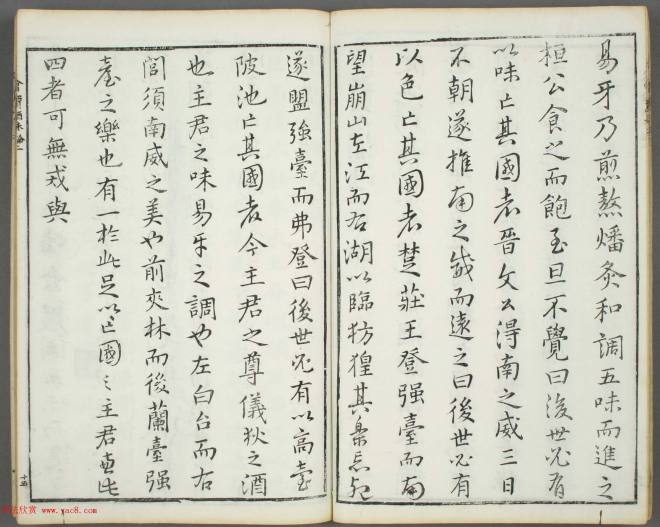 易牙乃煎熬燔炙和調五味而進之
桓公食之而飽至旦不覺曰後世必有
以味亡其國者晉文公得南之威三日
不朝遂推南之威而遠之曰後世必有
以色亡其國者楚莊王登强臺而南
望崩山左江而右湖以臨彷徨其樂忘死
遂盟強臺而弗登曰後世必有以高臺
陂池亡其國者今主君之尊儀狄之酒
也主君之味易牙之調也左白台而右
閭須南威之美也前夾林而後蘭臺强
臺之樂也有一於此足以亡國〻主君兼此
四者可無戒與
十五
www.yac8.com